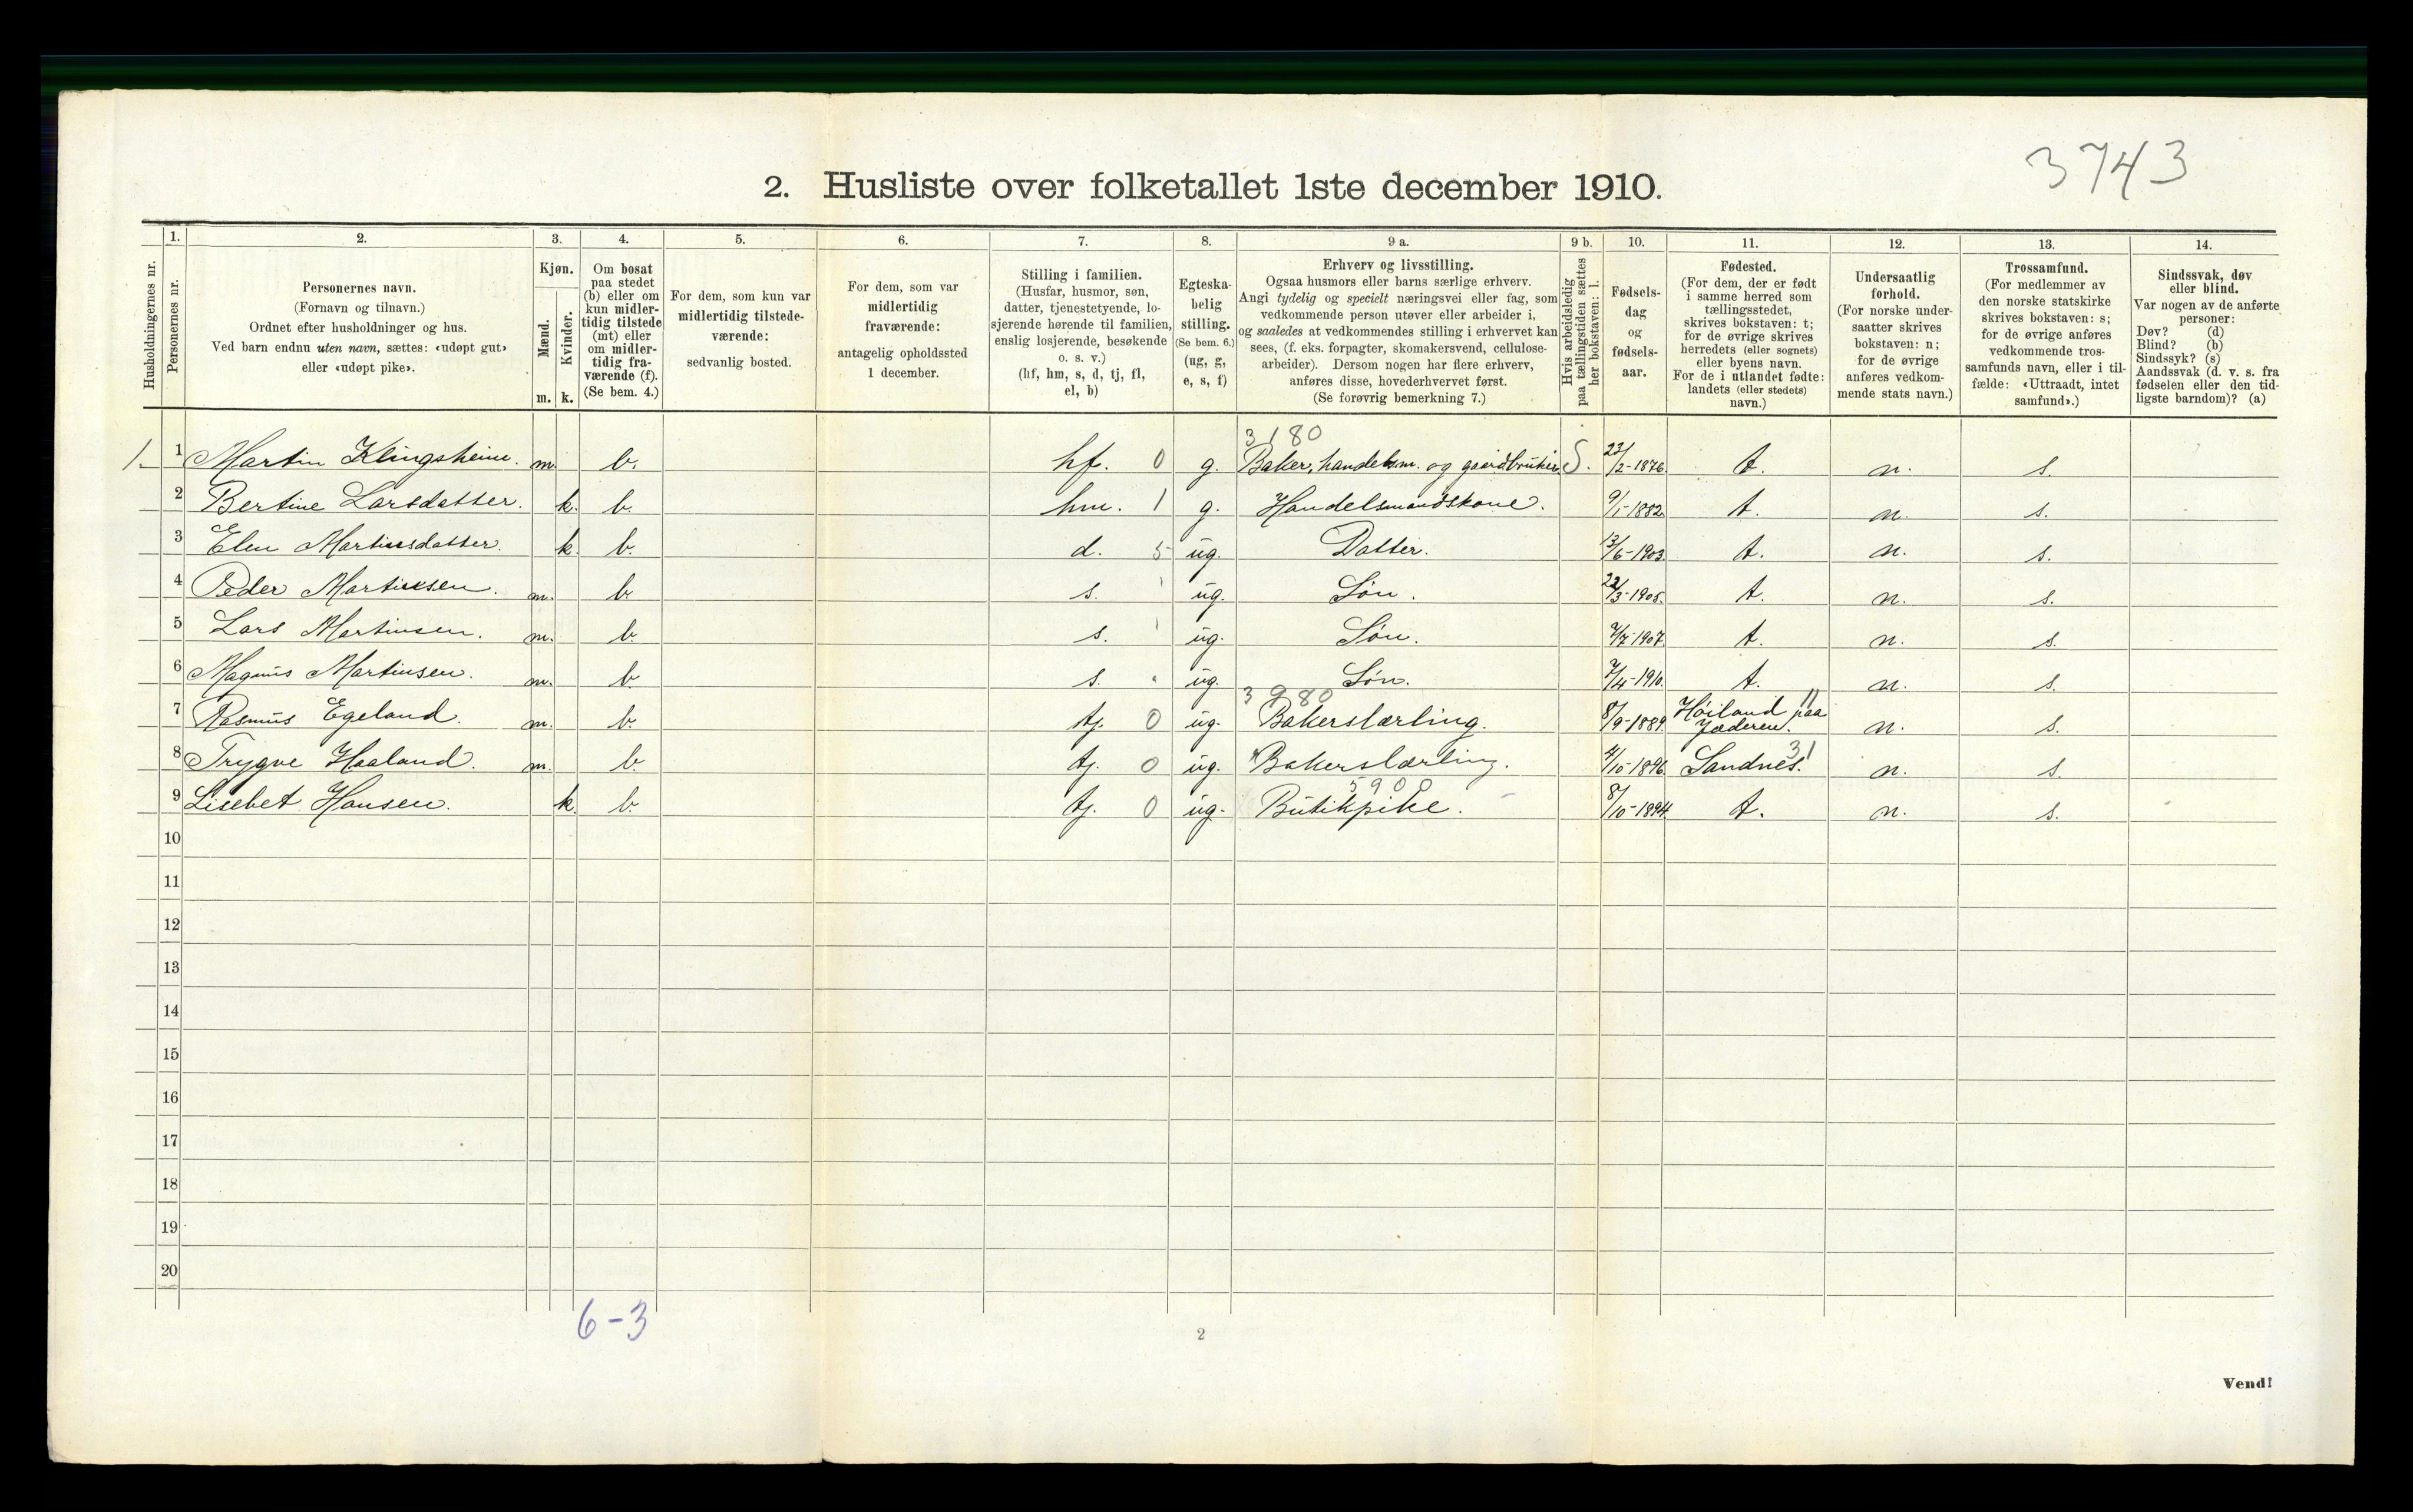 3743
2. Husliste over folketallet 1ste december 1910.
Husholdningernes nr.
1. Personernes nr.
2. Personernes navn.
(Fornavn og tilnavn.)
Ordnet efter husholdninger og hus.
Ved barn endnu uten navn, sættes: «udøpt gut»
eller «udøpt pike».
3. Kjøn.
Mænd. Kvinder.
m. k.
4. Om bosat
paa stedet
(b) eller om
kun midler-
tidig tilstede
(mt) eller
om midler-
tidig fra-
værende (f).
(Se bem. 4.)
5. For dem, som kun var
midlertidig tilstede-
værende:
sedvanlig bosted.
6. For dem, som var
midlertidig
fraværende:
antagelig opholdssted
1 december.
7. Stilling i familien.
(Husfar, husmor, søn,
datter, tjenestetyende, lo-
sjerende hørende til familien,
enslig losjerende, besøkende
o. s. v.)
(hf, hm, s, d, tj, fl,
el, b)
8. Egteska-
belig
stilling.
(Se bem. 6.)
(ug, g,
e, s, f)
9 a. Erhverv og livsstilling.
Ogsaa husmors eller barns særlige erhverv.
Angi tydelig og specielt næringsvei eller fag, som
vedkommende person utøver eller arbeider i,
og saaledes at vedkommendes stilling i erhvervet kan
sees, (f. eks. forpagter, skomakersvend, cellulose-
arbeider). Dersom nogen har flere erhverv,
anføres disse, hovederhvervet først.
(Se forøvrig bemerkning 7.)
9 b. Hvis arbeidsledig
paa tællingstiden sættes
her bokstaven: l.
10. Fødsels-
dag
og
fødsels-
aar.
11. Fødested.
(For dem, der er født
i samme herred som
tællingsstedet,
skrives bokstaven: t;
for de øvrige skrives
herredets (eller sognets)
eller byens navn.
For de i utlandet fødte:
landets (eller stedets)
navn.)
12. Undersaatlig
forhold.
(For norske under-
saatter skrives
bokstaven: n;
for de øvrige
anføres vedkom-
mende stats navn.)
13. Trossamfund.
(For medlemmer av
den norske statskirke
skrives bokstaven: s;
for de øvrige anføres
vedkommende tros-
samfunds navn, eller i til-
fælde: «Uttraadt, intet
samfund».)
14. Sindssvak, døv
eller blind.
Var nogen av de anførte
personer:
Døv? (d)
Blind? (b)
Sindssyk? (s)
Aandssvak (d. v. s. fra
fødselen eller den tid-
ligste barndom)? (a)
3180
1. 1 Martin Klingsheim. m. b. hf. 0 g. Baker, handelsm. og gaardbruker S. 23/2-1876. t. n. s.
2 Bertine Larsdatter. k. b. hm. 1 g. Handelsmandskone. 9/1-1882. t. n. s.
3 Elen Martinsdatter. k. b. d. 5 ug. Datter. 13/6-1903. t. n. s.
4 Peder Martinsen. m. b. s. ug. Søn. 22/3-1905. t. n. s.
5 Lars Martinsen. m. b. s. ug. Søn. 1907. t. n. s.
6 Magnus Martinsen. m. b. s. ug. Søn. 7/4-1910. t. n. s.
3980
7 Rasmus Egeland. m. b. tj. 0 ug. Bakerslærling. 8/9-1889. Høiland paa Jæderen. 11 n. s.
8 Trygve Haaland. m. b. tj. 0 ug. Bakerslærling. 4/10-1896. Sandnes. 31 n. s.
5900
9 Lisebet Hansen. k. b. tj. 0 ug. Butikpike. 8/10-1894. t. n. s.
10
11
12
13
14
15
16
17
18
19
20
6-3
2
Vend!